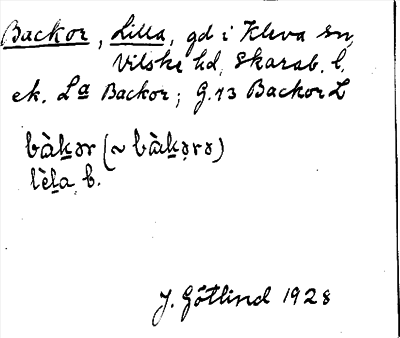 Backor, Lilla, gd i Kleva sn,
Vilske hd, Skarab. l.
ek. La Backor; G.73 Backor L
bàkər (~ bàkərə)
lèla b.
J. Götlind 1928